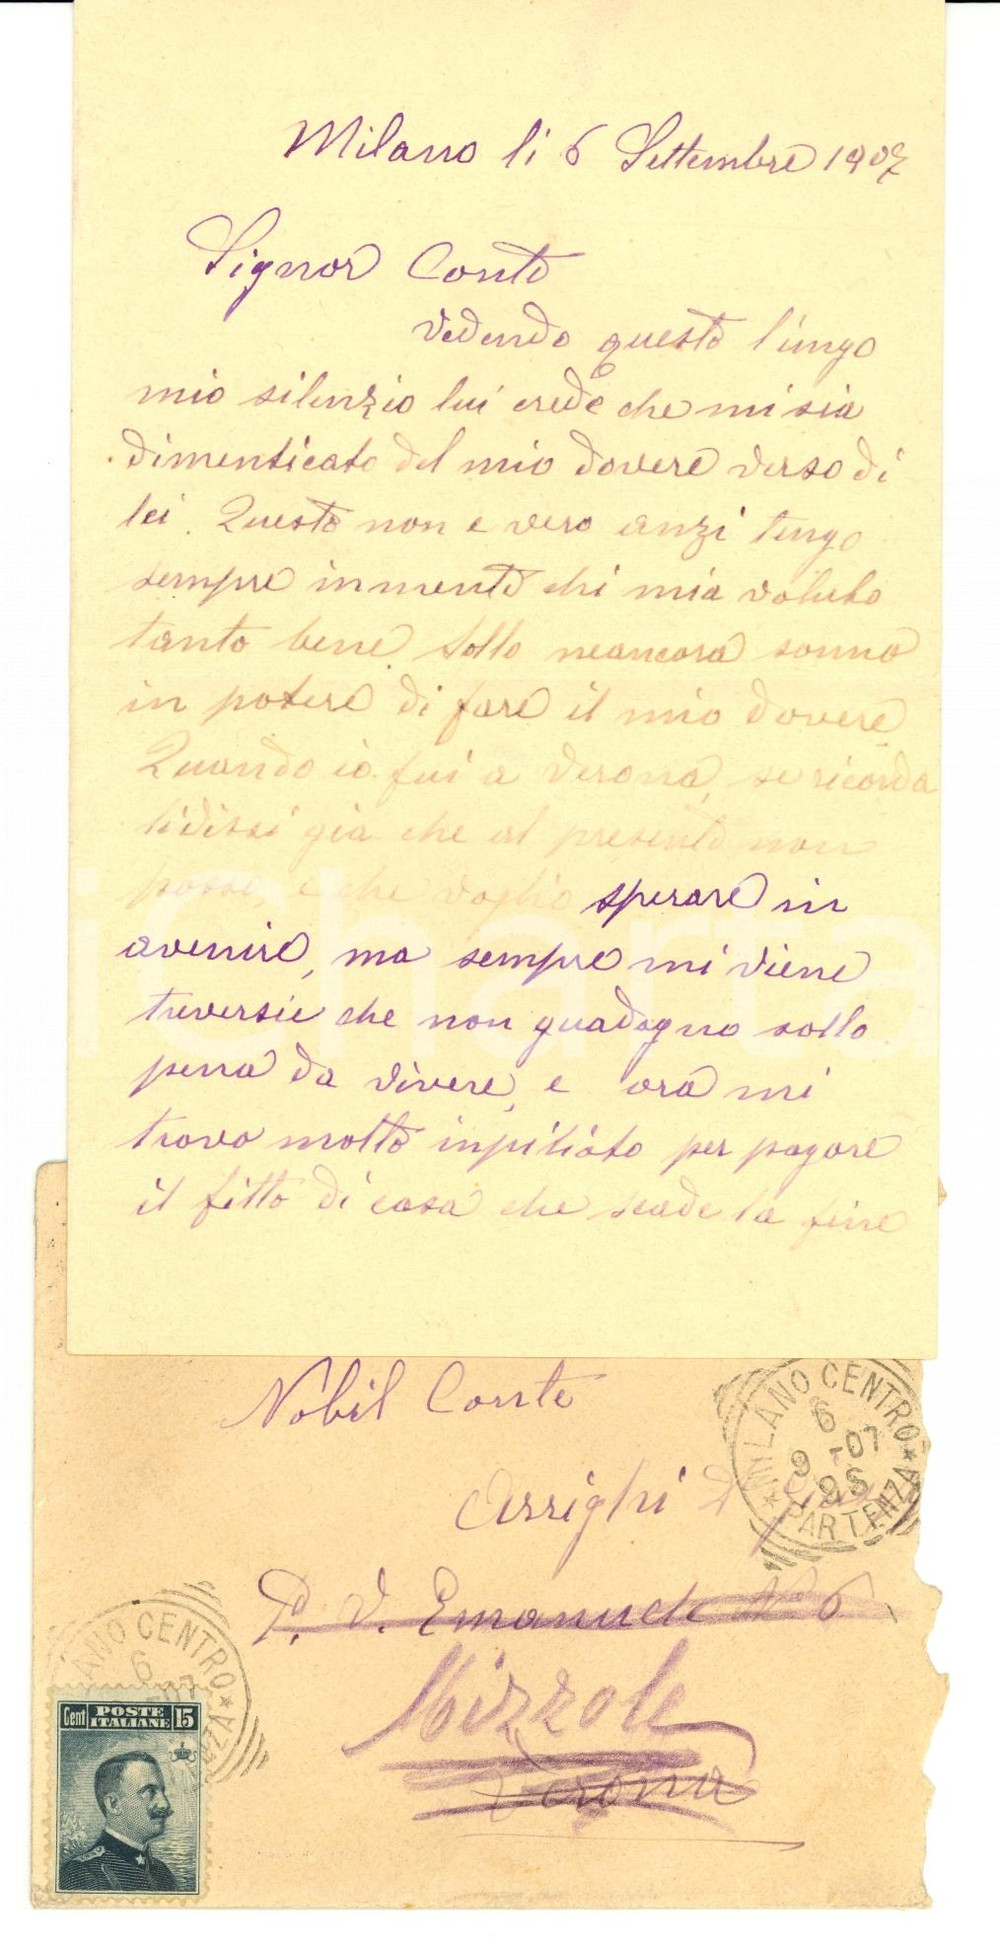 Milano li 6 Settembre 1907
Signor Conte
Vedendo questo lungo
mio silenzio lui crede che mi sia
dimenticato del mio dovere verso di
lei. Questo non e vero anzi tengo
sempre inmente chi mia voluto
tanto bene. Sollo neancora sonno
in potere di fare il mio dovere
Quando io fui a Verona, se ricorda
lidissi gia che al presente non
posso, e che voglio sperare in
avenire, ma sempre mi viene
traversie che non guadagno sollo
pena da vivere, e ora mi
trovo molto inpiciato per pagare
il fitto di casa che scade la fine
Nobil Conte
Arrighi
P. V. Emanuele No 6
Mizzole
Verona
MILANO CENTRO
6
9 -07
PARTENZA
MILANO CENTRO
6
Cent POSTE ITALIANE 15
iCharta